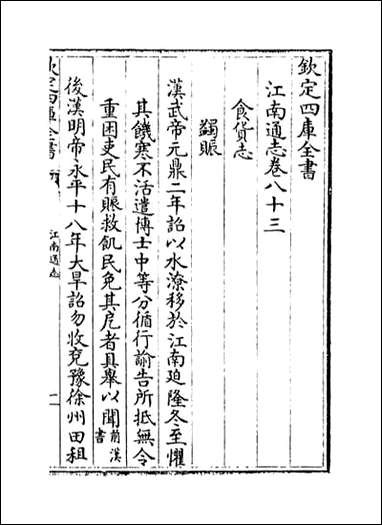 欽定四庫全書
江南通志卷八十三
食貨志
蠲賑
漢武帝元鼎二年詔以水潦移於江南廹隆冬至懼
其饑寒不活遣博士中等分循行諭告所抵無令
重困吏民有賑救飢民免其戹者具舉以聞前漢書
後漢明帝永平十八年大旱詔勿收兗豫徐州田租
欽定四庫全書
江南通志
一